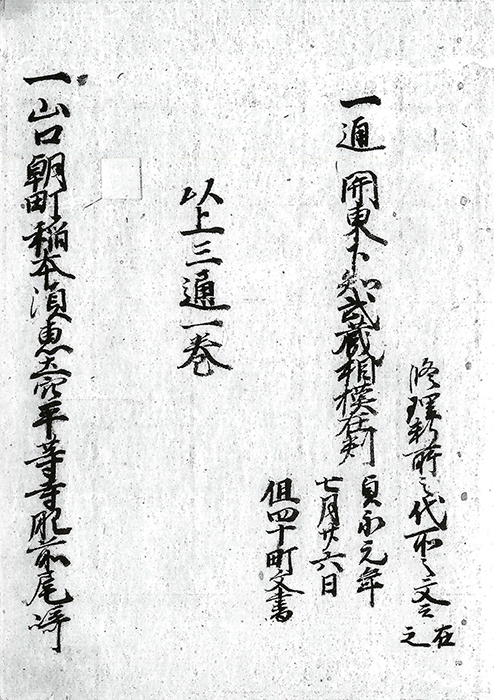 修理料所之代所々文云
在之
一通 関東下知武蔵相模在判
貞永元年
七月廿六日
但四十町文書
以上三通一巻
一山口朝町稲本須恵土穴平等寺肥前尾崎